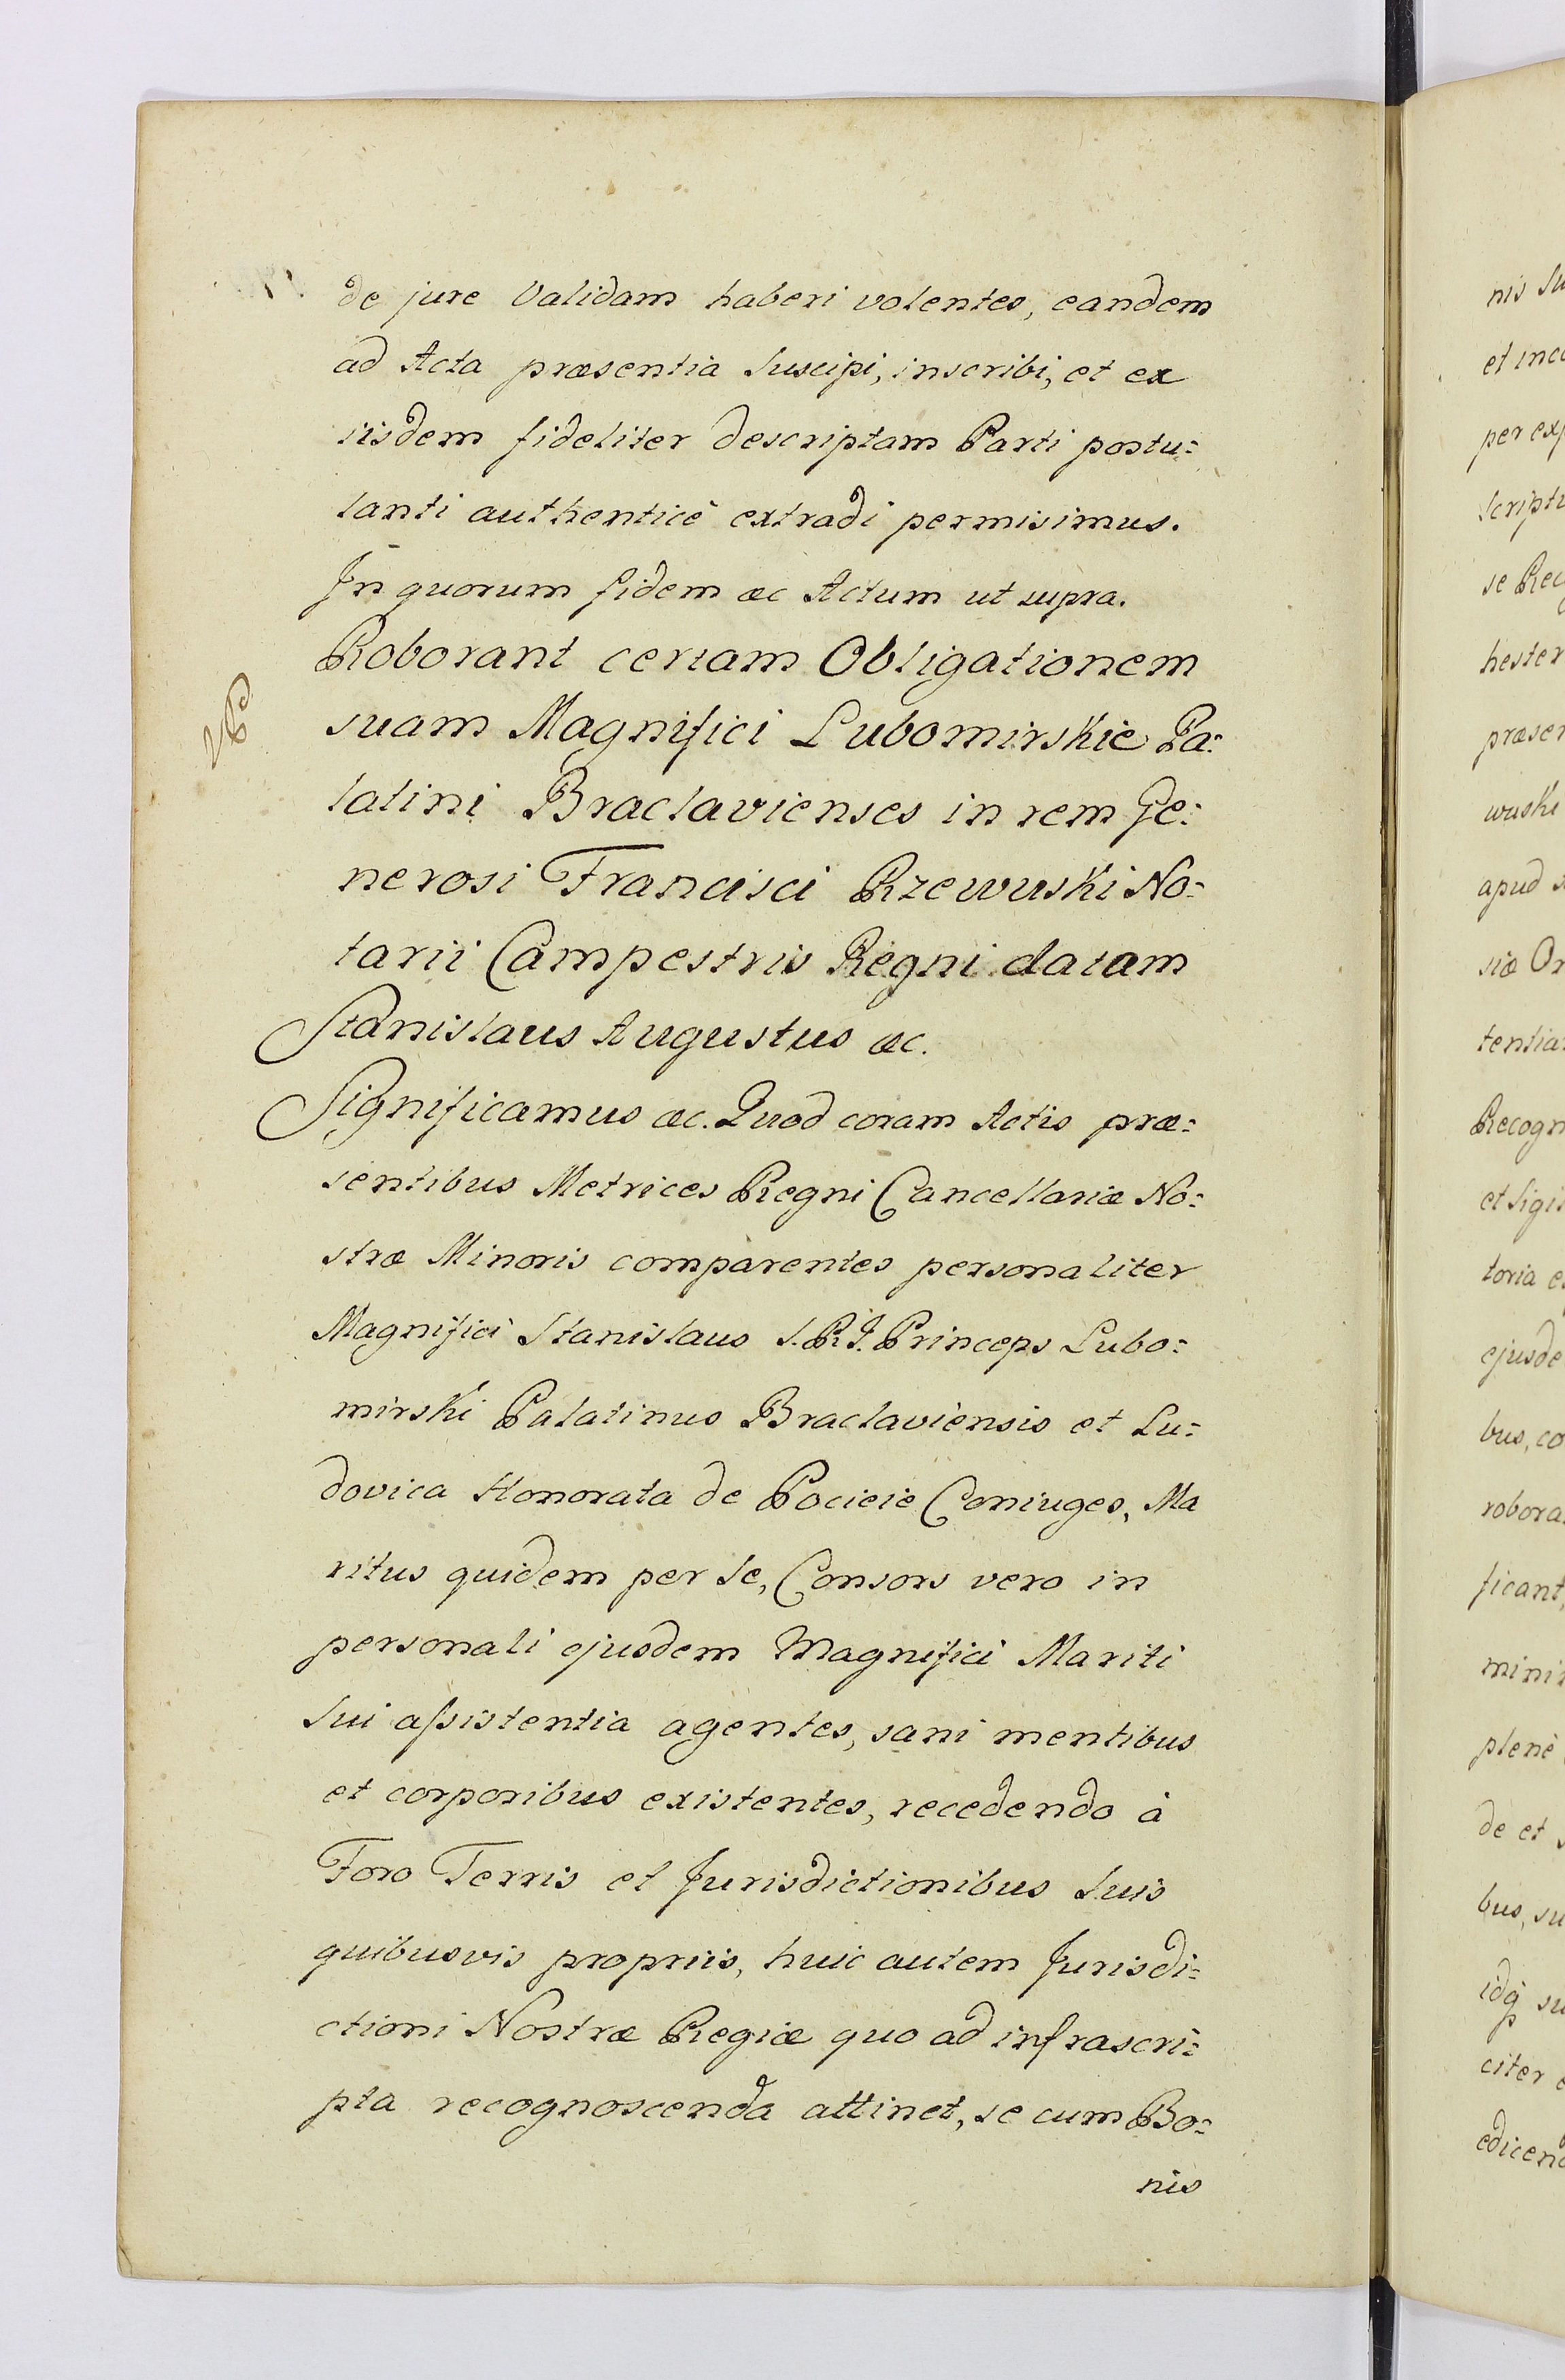 de jure Validam haberi volentes, eandem
ad Acta præsentia suscipi, inscribi, et ex
iisdem fideliter descriptam Parti postu=
lanti authenticè extradi permisimus.
In quorum fidem &c Actum ut supra.
Roborant certam Obligationem
suam Magnifici Lubomirskie Pa=
latini Braclavienses in rem Ge=
nerosi Francisci Rzewuski No=
tarii Campestris Regni datam
Stanislaus Augustus &c.
Significamus &c. Quod coram Actis præ=
sentibus Metrices Regni Cancellariæ No=
stræ Minoris comparentes personaliter
Magnifici Stanislaus S.R.I. Princeps Lubo=
mirski Palatinus Braclaviensis et Lu=
dovica Honorata de Pocieie Coniuges, Ma
ritus quidem per se, Consors vero in
personali ejusdem Magnifici Mariti
sui assistentia agentes, sani mentibus
et corporibus existentes, recedendo à
Foro Terris et Jurisdictionibus suis
quibusvis propriis, huic autem Jurisdi=
ctioni Nostræ Regiæ quo ad infrascri=
pta recognoscenda attinet, se cum Bo=
nis
nis su
et inco
per exp
scriptu
se Rec
hester
præsen
wuski
apud
siæ Or
tentia
Recogn
et sigi
toria e
ejusde
bus, co
robora
ficant,
mini
plenè
de et s
bus, su
idq su
citer e
edicend